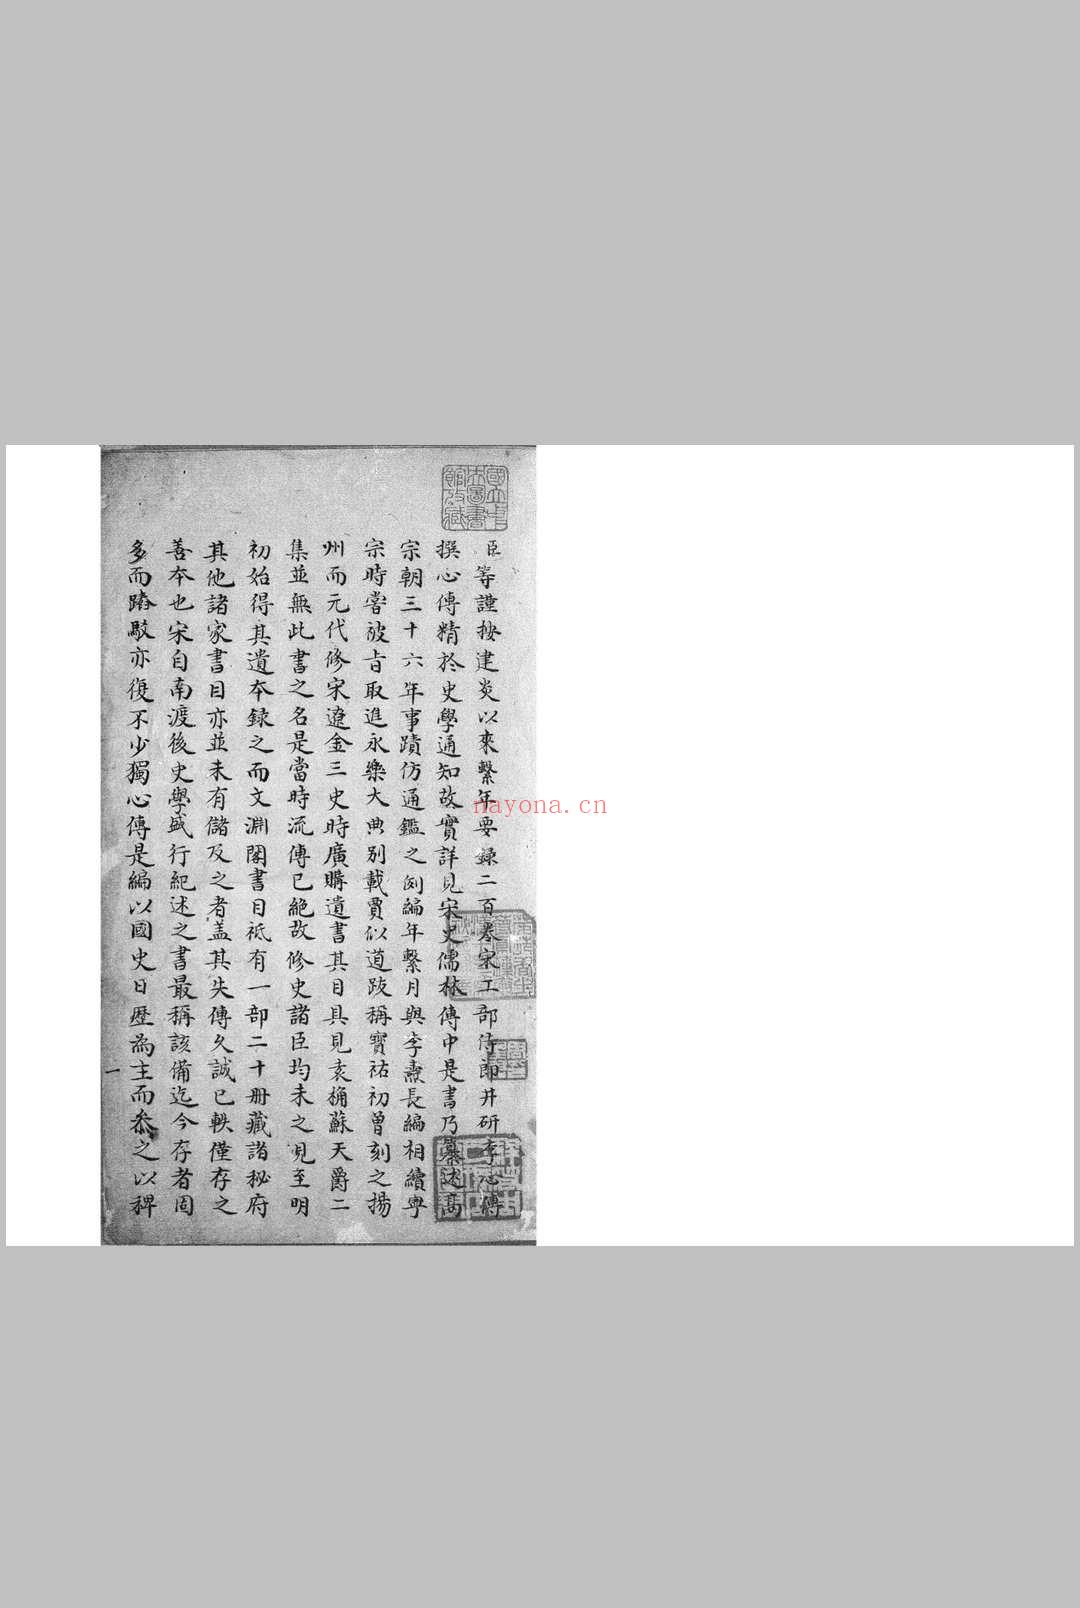 臣等謹按建炎以來繫年要錄二百卷宋工部侍郎井研李心傳
撰心傳精於史學通知故實詳見宋史儒林傳中是書乃纂述髙
宗朝三十六年事蹟仿通鑑之例編年繫月與李燾長編相續寧
宗時嘗被旨取進永樂大典别載賈似道跋稱寳祐初曾刻之揚
州而元代修宋遼金三史時廣購遺書其目具見袁桷蘇天爵二
集並無此書之名是當時流傳已絶故修史諸臣均未之見至明
初始得其遺本錄之而文淵閣書目祗有一部二十册藏諸秘府
其他諸家書目亦並未有儲及之者盖其失傳久誠已軼僅存之
善本也宋自南渡後史學盛行紀述之書最稱該備迄今存者固
多而踳駁亦復不少獨心傳是編以國史日歷為主而叅之以稗
一
國立中央圖書館收藏
nayona.cn